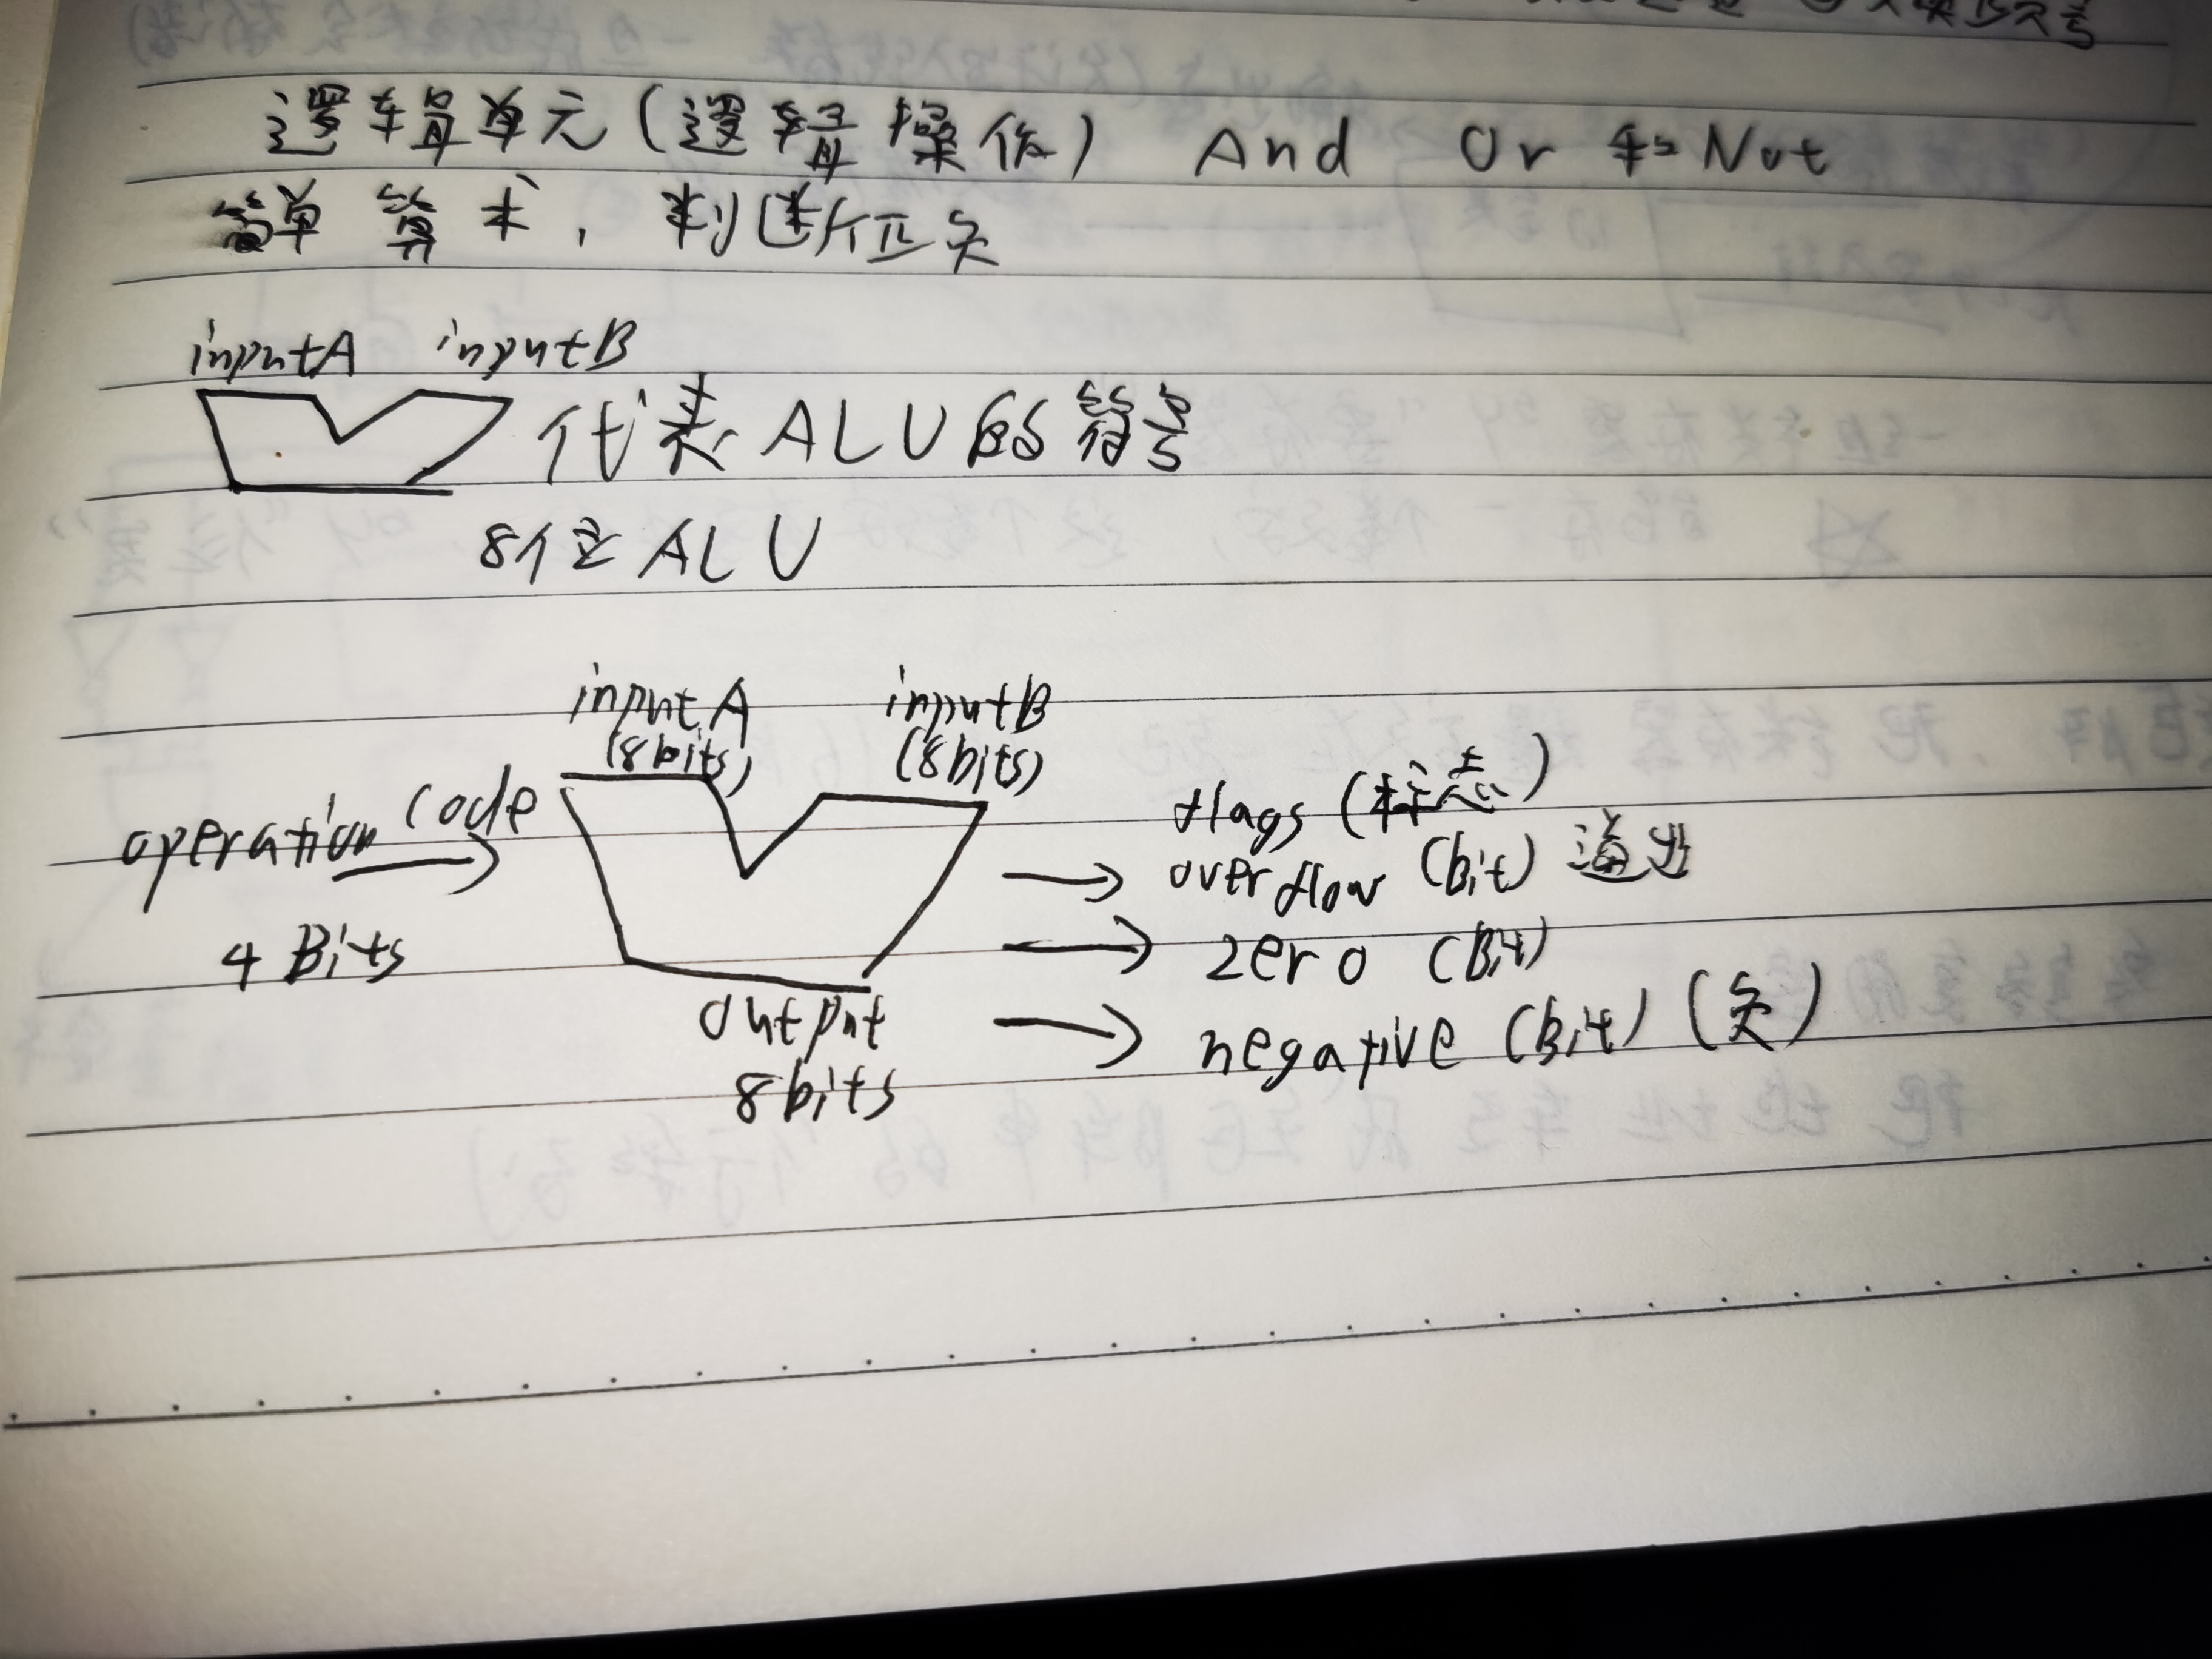 逻辑单元(逻辑操作) And Or 和 Not
简单算术, 判断正负
inputA inputB
代表ALU的符号
8位ALU
input A inputB
(8bits) (8bits)
operation code
4 Bits
flags (标志)
overflow (Bit) 溢出
zero (Bit)
negative (Bit) (负)
output
8bits